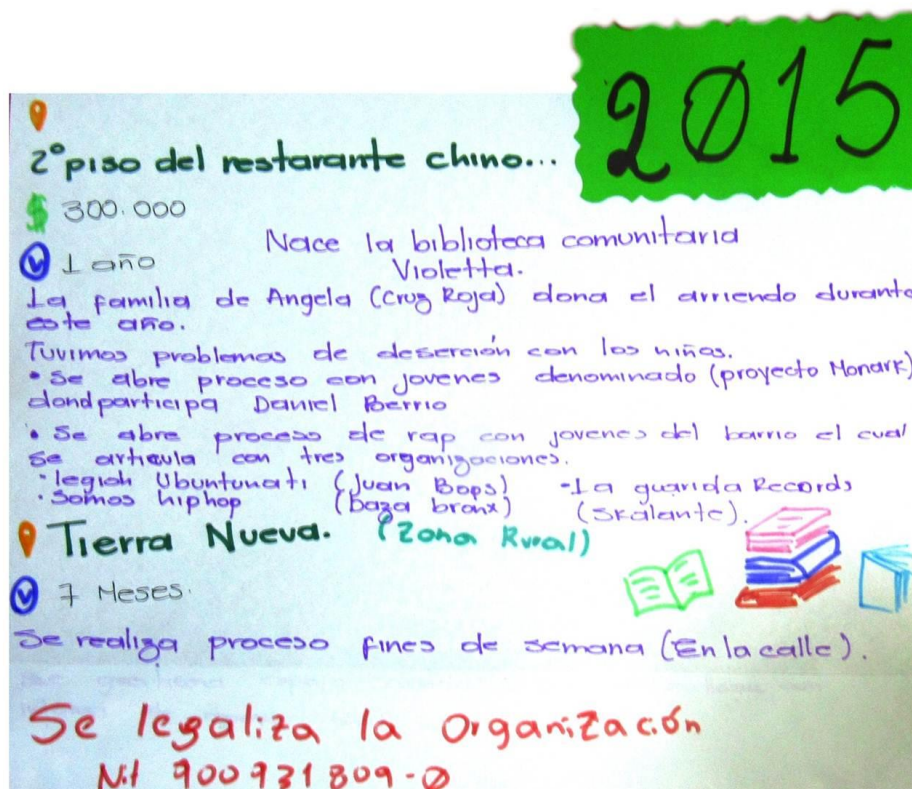 2015
2º piso del restarante chino...
$ 300.000
1 año
Nace la biblioteca comunitaria
Violetta.
La familia de Angela (Cruz Roja) dona el arriendo durante
este año.
Tuvimos problemas de deserción con los niños.
• Se abre proceso con jovenes denominado (proyecto Monark)
dond participa Daniel Berrio
• Se abre proceso de rap con jovenes del barrio el cual
se articula con tres organizaciones.
· legion Ubuntunati (Juan Bops) - La guarida Records
· Somos hiphop (baza bronx) (Skalante).
Tierra Nueva. (Zona Rural)
7 Meses.
Se realiza proceso fines de semana (En la calle).
Se legaliza la Organización
Nit 900931809-0